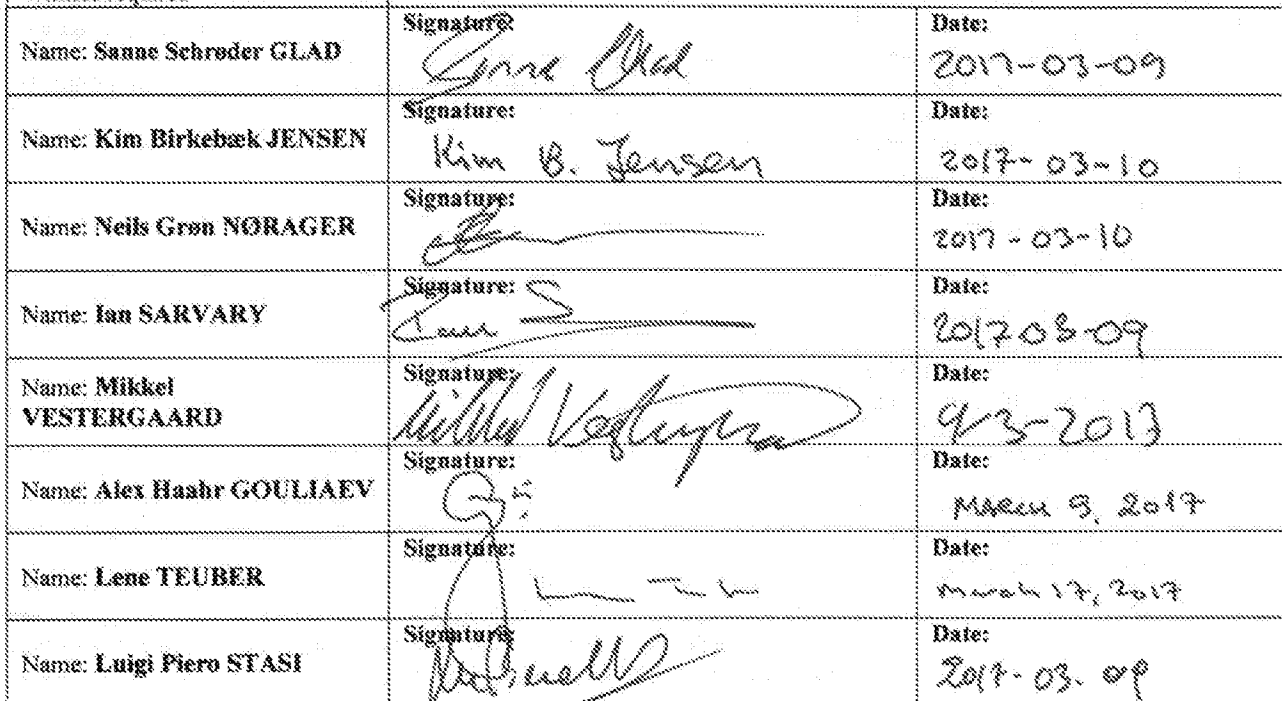 Name: Sanne Schrøder GLAD
Signature:
Sanne Glad
Date:
2017-03-09
Name: Kim Birkebæk JENSEN
Signature:
Kim B. Jensen
Date:
2017-03-10
Name: Neils Grøn NØRAGER
Signature:
Date:
2017-03-10
Name: Ian SARVARY
Signature:
Date:
2017 03-09
Name: Mikkel
VESTERGAARD
Signature:
Mikkel Vestergaard
Date:
9-3-2017
Name: Alex Haahr GOULIAEV
Signature:
Date:
March 9, 2017
Name: Lene TEUBER
Signature:
Date:
March 17, 2017
Name: Luigi Piero STASI
Signature:
Date:
2017-03-09